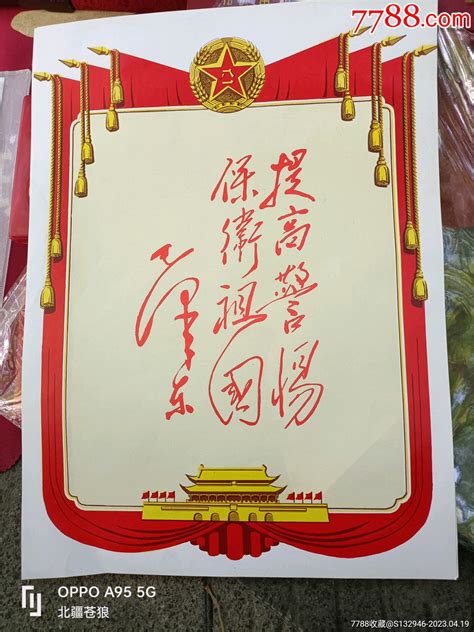 7788.com
八一
提高警惕
保衛祖國
毛泽东
OPPO A95 5G
北疆苍狼
7788收藏@S132946-2023.04.19